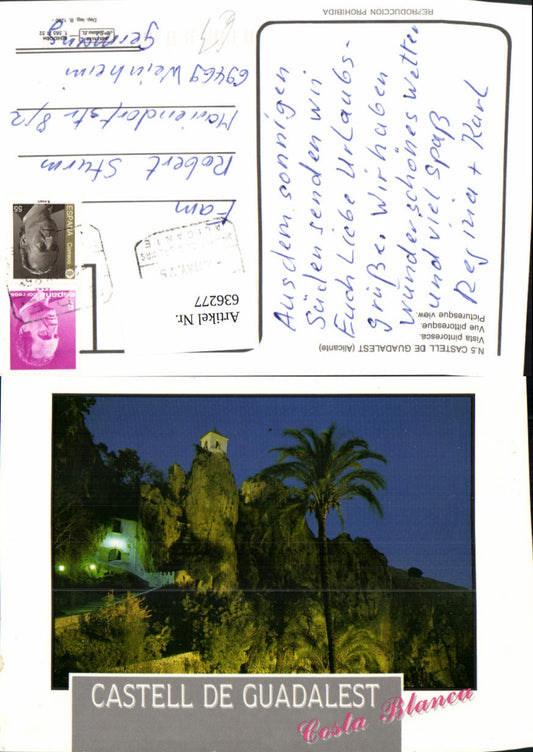 REPRODUCCION PROHIBIDA
Aus dem sonnigen
Süden senden wir
Euch Liebe Urlaubs-
grüße. Wir haben
wunderschönes Wetter
und viel Spaß
Regina + Karl
N.5 CASTELL DE GUADALEST (Alicante)
Vista pintoresca.
Vue pittoresque.
Picturesque view.
Fam
Robert Sturm
Mariendorfstr. 8/2
69469 Weinheim
Germany
ESPAÑA
Correos
55
españa
correos
Artikel Nr.
636277
CASTELL DE GUADALEST
Costa Blanca